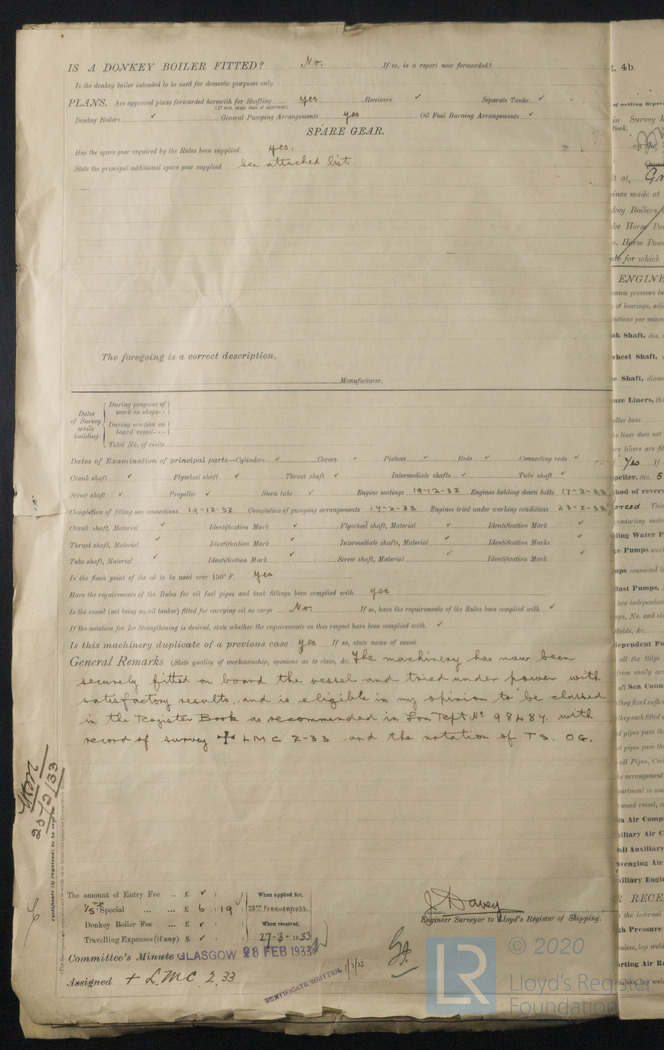 IS A DONKEY BOILER FITTED? No. If so, is a report now forwarded?
Is the donkey boiler intended to be used for domestic purposes only
PLANS. Are approved plans forwarded herewith for Shafting yes Receivers ✓ Separate Tanks ✓
Donkey Boilers ✓ General Pumping Arrangements yes Oil Fuel Burning Arrangements ✓
SPARE GEAR.
Has the spare gear required by the Rules been supplied yes.
State the principal additional spare gear supplied See attached list.
The foregoing is a correct description,
Manufacturer.
Dates of Survey while building
During progress of work in shops - -
During erection on board vessel - - -
Total No. of visits
Dates of Examination of principal parts—Cylinders ✓ Covers ✓ Pistons ✓ Rods ✓ Connecting rods ✓
Crank shaft ✓ Flywheel shaft ✓ Thrust shaft ✓ Intermediate shafts ✓ Tube shaft ✓
Screw shaft ✓ Propeller ✓ Stern tube ✓ Engine seatings 19-12-32 Engines holding down bolts 17-2-33
Completion of fitting sea connections 19-12-32 Completion of pumping arrangements 17-2-33 Engines tried under working conditions 23-2-33
Crank shaft, Material ✓ Identification Mark ✓ Flywheel shaft, Material ✓ Identification Mark ✓
Thrust shaft, Material ✓ Identification Mark ✓ Intermediate shafts, Material ✓ Identification Marks ✓
Tube shaft, Material ✓ Identification Mark ✓ Screw shaft, Material ✓ Identification Mark ✓
Is the flash point of the oil to be used over 150° F. Yes
Have the requirements of the Rules for oil fuel pipes and tank fittings been complied with yes
Is the vessel (not being an oil tanker) fitted for carrying oil as cargo No. If so, have the requirements of the Rules been complied with ✓
If the notation for Ice Strengthening is desired, state whether the requirements in this respect have been complied with ✓
Is this machinery duplicate of a previous case yes If so, state name of vessel
General Remarks (State quality of workmanship, opinions as to class, &c. The machinery has now been
securely fitted on board the vessel and tried under power with
satisfactory results, and is eligible in my opinion to be classed
in the Register Book as recommended in Lon Rpt No 98484. with
record of survey ✠ LMC 2-33 and the notation of TS. OG.
20/2/33
The amount of Entry Fee ... £ ✓ : When applied for,
1/5th Special ... ... £ 6 : 19 28TH FEBRUARY 1933
Donkey Boiler Fee ... £ ✓ : When received,
Travelling Expenses (if any) £ ✓ : 27-3-1933
J. Davey
Engineer Surveyor to Lloyd's Register of Shipping.
Committee's Minute GLASGOW 28 FEB 1933
Assigned + LMC 2.33
CERTIFICATE WRITTEN
© 2020
Lloyd's Register
Foundation
LR